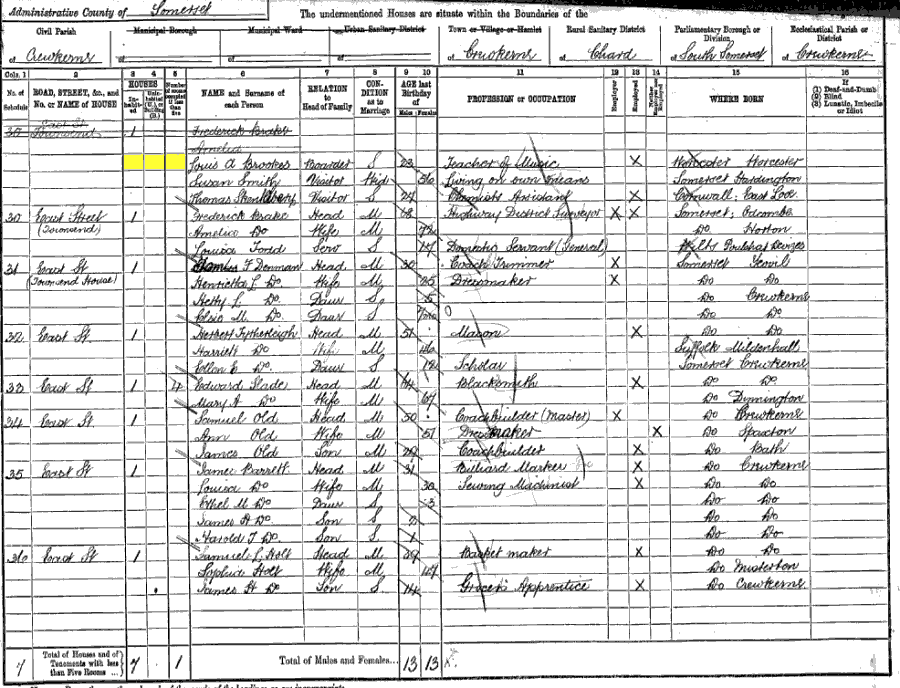 Administrative County of Somerset The undermentioned Houses are situate within the Boundaries of the
Civil Parish Municipal Borough Municipal Ward Urban Sanitary District Town or Village or Hamlet Rural Sanitary District Parliamentary Borough or Division Ecclesiastical Parish or District
of Crewkerne of of of of Crewkerne of Chard of South Somerset of Crewkerne
Cols. 1 2 3 4 5 6 7 8 9 10 11 12 13 14 15 16
No. of Schedule ROAD, STREET, &c., and No. or NAME of HOUSE HOUSES Inhabited Uninhabited (U.), or Building (B.) Number of rooms occupied if less than five NAME and Surname of each Person RELATION to Head of Family CONDITION as to Marriage AGE last Birthday of Males Females PROFESSION or OCCUPATION Employer Employed Neither Employer nor Employed WHERE BORN If (1) Deaf-and-Dumb (2) Blind (3) Lunatic, Imbecile or Idiot
East St
Townsend 1 Frederick Brake
Amelia
Louis A Brookes Boarder S 23 Teacher of Music X Worcester Worcester
Susan Smith Visitor Wid 56 Living on own means Somerset Hardington
Thomas Visitor S 24 Chemists Assistant X Cornwall East Looe
30 East Street 1 Frederick Brake Head M 68 Highway District Surveyor X X Somerset; Odcombe
(Townsend) Amelia Do Wife M 72 Do Horton
Louisa Todd Serv S 17 Domestic Servant (General) Wilts Poulshot Devizes
31 East St 1 James F Denman Head M 30 Coach Trimmer X Somerset Yeovil
(Townsend House) Henrietta L Do Wife M 25 Dressmaker X Do Do
Hetty L Do Daur S 5 Do Crewkerne
Elsie M Do Daur S Do Do
32 East St 1 Herbert Head M 51 Mason X Do Do
Harriett Do Wife M 46 Suffolk Mildenhall
Ellen E Do Daur S 12 Scholar Somerset Crewkerne
33 East St 1 4 Edward Slade Head M 64 Blacksmith X Do Do
Mary A Do Wife M 67 Do Dinnington
34 East St 1 Samuel Old Head M 50 Coachbuilder (Master) X Do Crewkerne
Ann Old Wife M 51 Dressmaker X Do Spaxton
James Old Son M 29 Coachbuilder X Do Bath
35 East St 1 James Barrett Head M 31 Billiard Marker X Do Crewkerne
Louisa Do Wife M 30 Sewing Machinist X Do Do
Ethel M Do Daur S 3 Do Do
James H Do Son S 2 Do Do
Harold T Do Son S Do Do
36 East St 1 Samuel L Holt Head M 39 Basket maker X Do Do
Sophia Holt Wife M 47 Do Misterton
James H Do Son S 14 Grocers Apprentice X Do Crewkerne
7 Total of Houses and of Tenements with less than Five Rooms 7 1 Total of Males and Females... 13 13